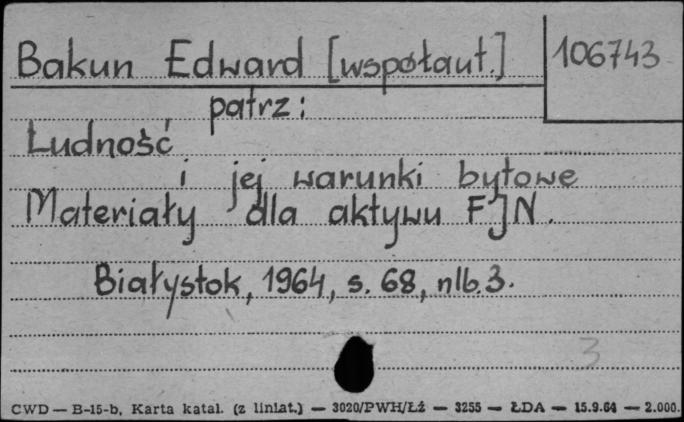 Bakun Edward [współaut.] 106743
patrz:
Ludność
i jej warunki bytowe
Materiały dla aktywu FJN.
Białystok, 1964, s. 68, nlb. 3.
3
CWD — B-15-b, Karta katal. (z liniat.) — 3020/PWH/Łź — 3255 — ŁDA — 15.9.64 — 2.000.